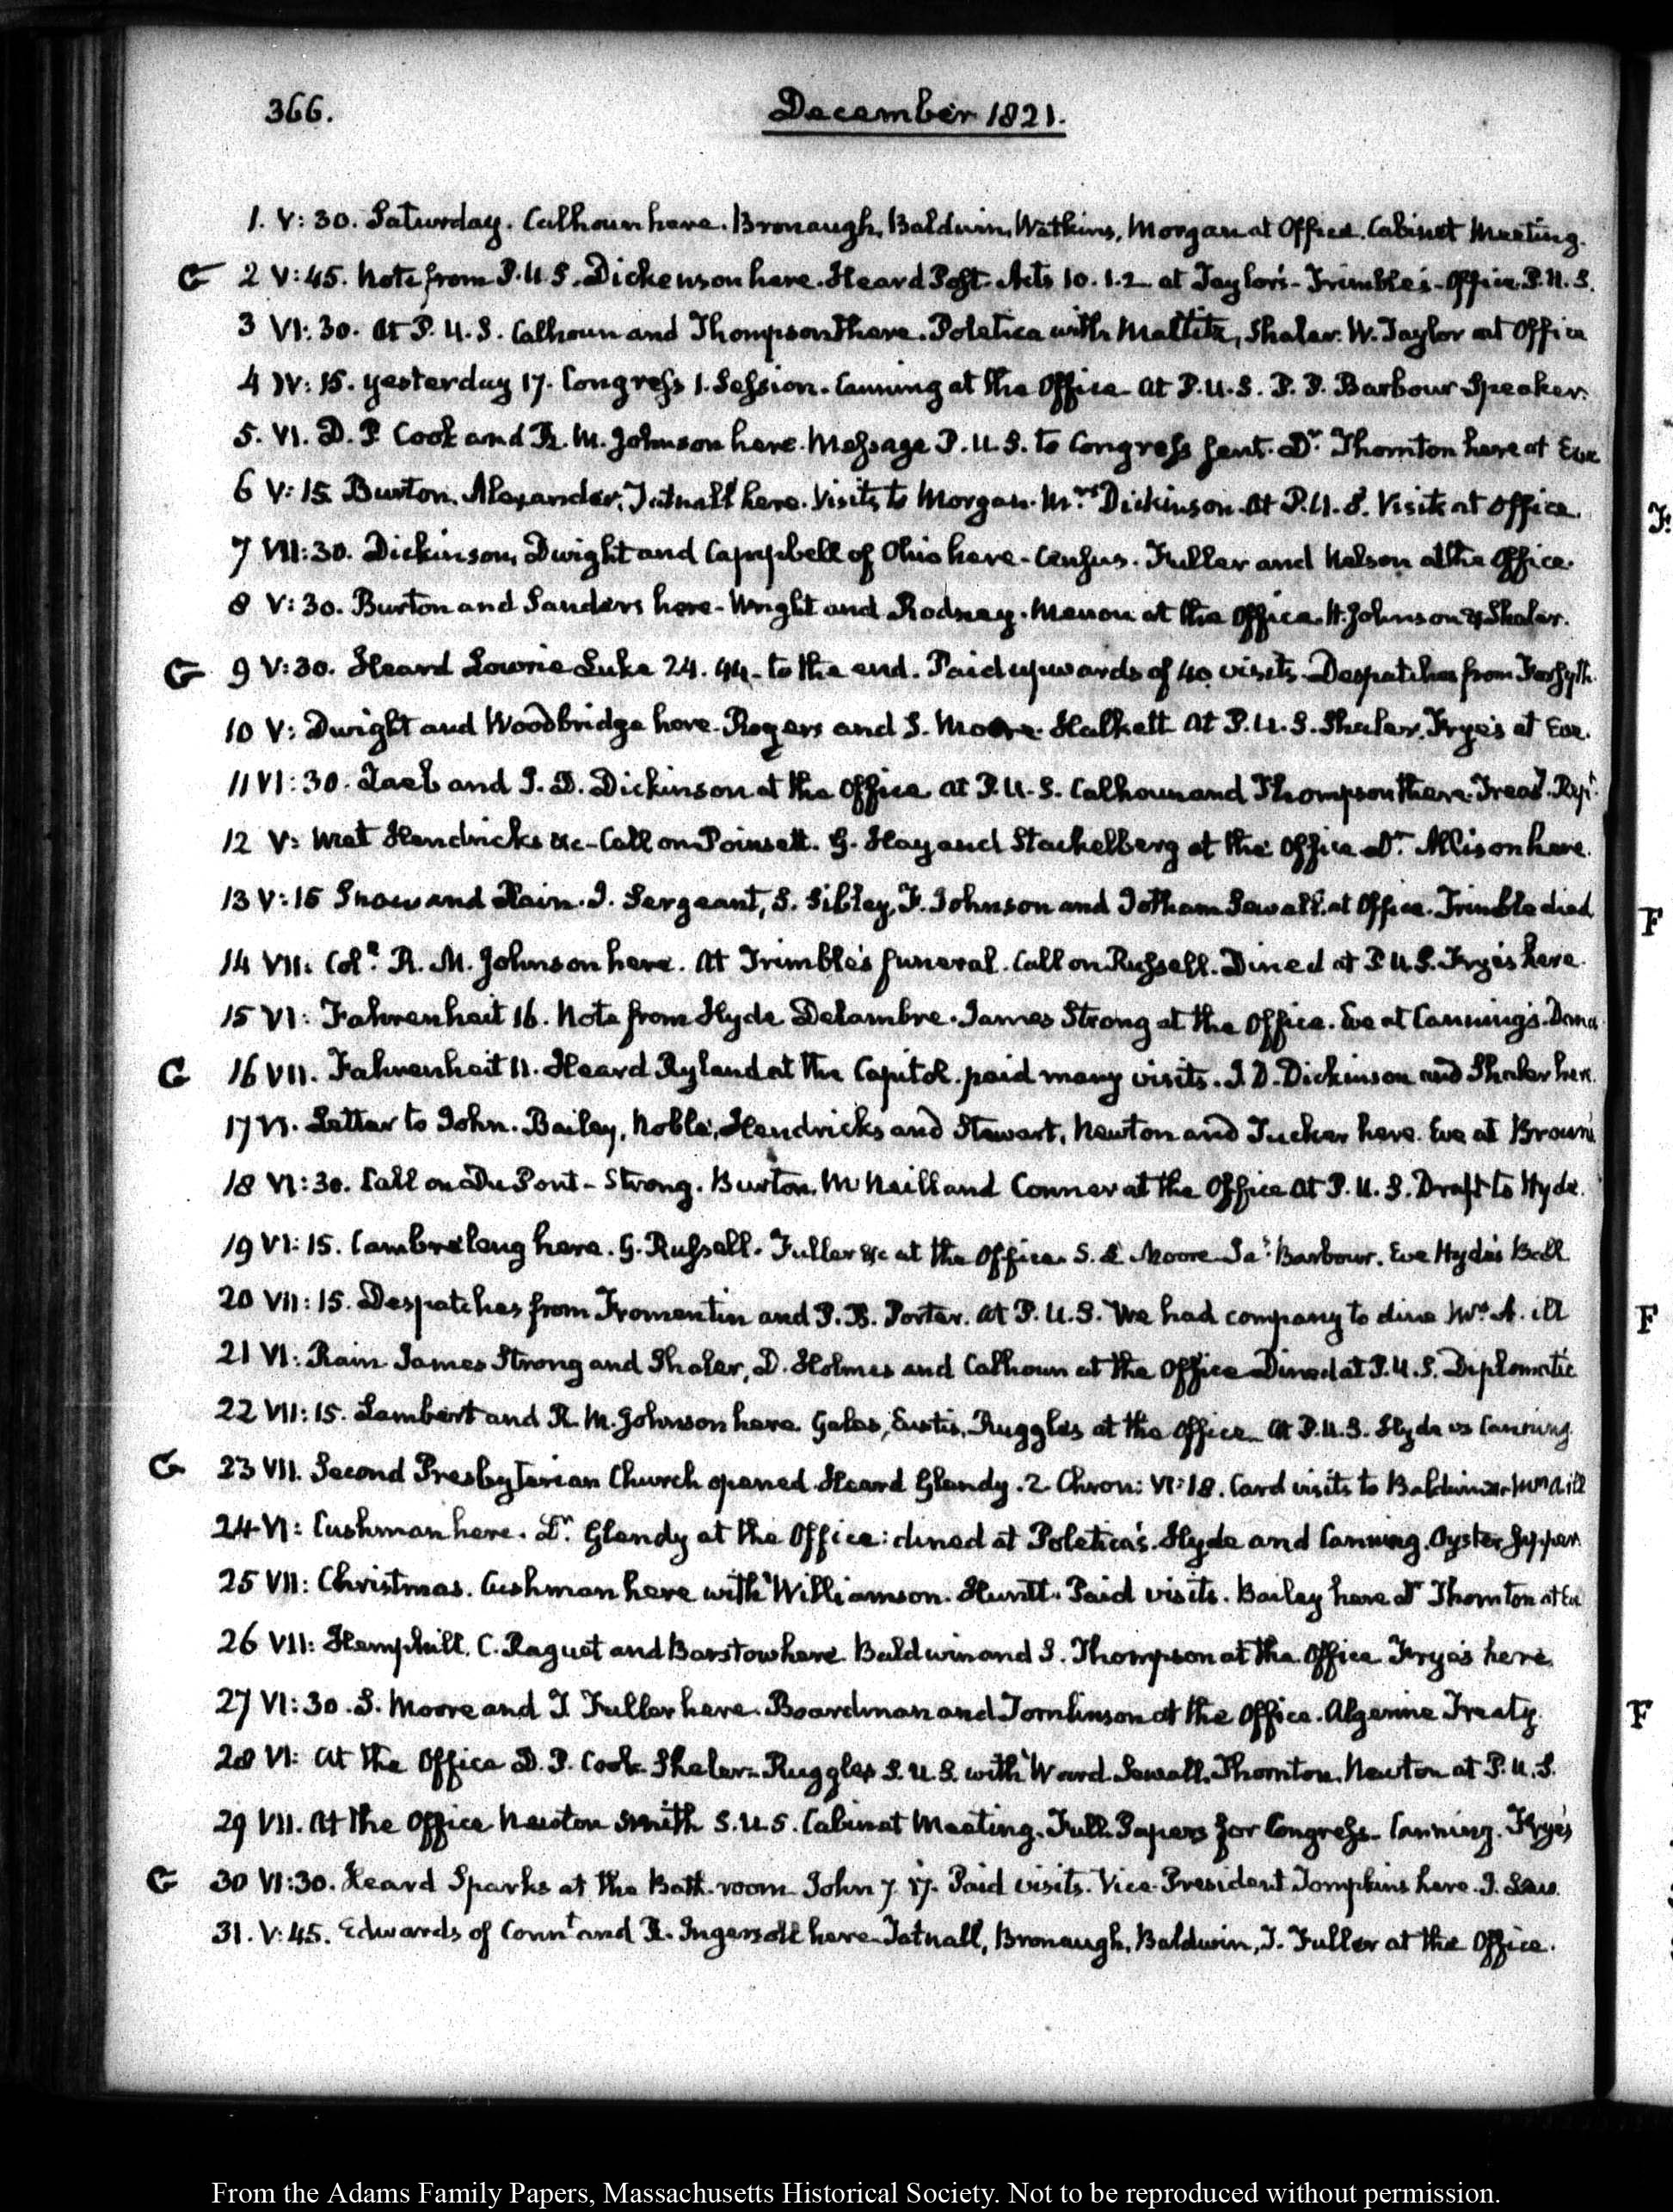 366.
December 1821.
1. V: 30. Saturday. Calhoun here. Bronaugh, Baldwin, Watkins, Morgan at Office. Cabinet Meeting.
G 2 V: 45. Note from P.U.S. Dickenson here. Heard Post. Acts 10. 1.2 at Taylor's - Trimble's - Office P.U.S.
3 VI: 30. At P.U.S. Calhoun and Thompson there. Poletica with Maltitz, Shaler. W. Taylor at Office
4 IV: 15. yesterday 17. Congress 1. Session. Canning at the Office at P.U.S. P. P. Barbour Speaker.
5. VI. D. P. Cook and R. M. Johnson here. Message P.U.S. to Congress sent. Dr. Thornton here at Eve
6 V: 15. Burton. Alexander. Tatnall here. Visits to Morgan. Mrs. Dickinson. At P.U.S. Visit at Office.
7 VII: 30. Dickinson, Dwight and Campbell of Ohio here - Census. Fuller and Nelson at the Office.
8 V: 30. Burton and Sanders here - Wright and Rodney. Menou at the Office. H. Johnson & Shaler.
G 9 V: 30. Heard Lowrie Luke 24. 44. to the end. Paid upwards of 40 visits. Despatches from Forsyth.
10 V: Dwight and Woodbridge here. Rogers and S. Moore. Halkett at P.U.S. Shaler. Frye's at Eve.
11 VI: 30. and J. D. Dickinson at the Office at P.U.S. Calhoun and Thompson there. Treasy. Rept.
12 V: Met Hendricks &c - Call on Poinsett. G. Hay and Stackelberg at the Office Dr. Allison here.
13 V: 15 Snow and Rain. J. Sergeant, S. Sibley, F. Johnson and Jotham Sewall at Office. Trimble died
14 VII. Coll. R. M. Johnson here. At Trimble's funeral. Call on Russell. Dined at P.U.S. Frye's here.
15 VI: Fahrenheit 16. Note from Hyde Delambre. James Strong at the Office. Eve at Canning's.
G 16 VII. Fahrenheit 11. Heard Ryland at the Capitol. paid many visits. J. D. Dickinson and Shaler here.
17 VI. Letter to John. Bailey, Noble, Hendricks and Stewart, Newton and Tucker here. Eve at Brown's
18 VI: 30. Call on Du Pont - Strong. Burton, McNeill and Conner at the Office at P.U.S. Draft to Hyde.
19 VI: 15. Cambreleng here. G. Russell. Fuller &c at the Office. S. & Moore Jas. Barbour. Eve Hyde's Ball
20 VII: 15. Despatches from Fromentin and P. B. Porter. at P.U.S. We had company to dine Mrs. A. ill
21 VI: Rain James Strong and Shaler, D. Holmes and Calhoun at the Office Dined at P.U.S. Diplomatic
22 VII: 15. Lambert and R. M. Johnson here. Gales, Eustis, Ruggles at the Office. At P.U.S. Hyde vs Canning.
G 23 VII. Second Presbyterian Church opened. Heard Glendy. 2. Chron: VI: 18. Card visits to Baldwin Mrs A ill
24 VI: Cushman here. Dr. Glendy at the Office: dined at Poletica's. Hyde and Canning. Oyster Supper.
25 VII: Christmas. Cushman here with Williamson. Huntt. Paid visits. Bailey here Dr Thornton at Eve
26 VII: Hemphill. C. Raguet and Barstow here. Baldwin and S. Thompson at the Office Frye's here.
27 VI: 30. S. Moore and T. Fuller here. Boardman and Tomlinson at the Office. Algerine Treaty.
28 VI: At the Office D. P. Cook Shaler. Ruggles S.U.S. with Ward. Sewall. Thornton. Newton at P.U.S.
29 VII. At the Office Newton Smith S.U.S. Cabinet Meeting. Full. Papers for Congress. Canning. Frye's
G 30 VI: 30. Heard Sparks at the Bath. room John 7. 17. Paid visits. Vice-President Tompkins here. J. Law.
31. V: 45. Edwards of Connt and R. Ingersoll here. Tatnall, Bronaugh, Baldwin, T. Fuller at the Office.
F.
F
F
F
From the Adams Family Papers, Massachusetts Historical Society. Not to be reproduced without permission.